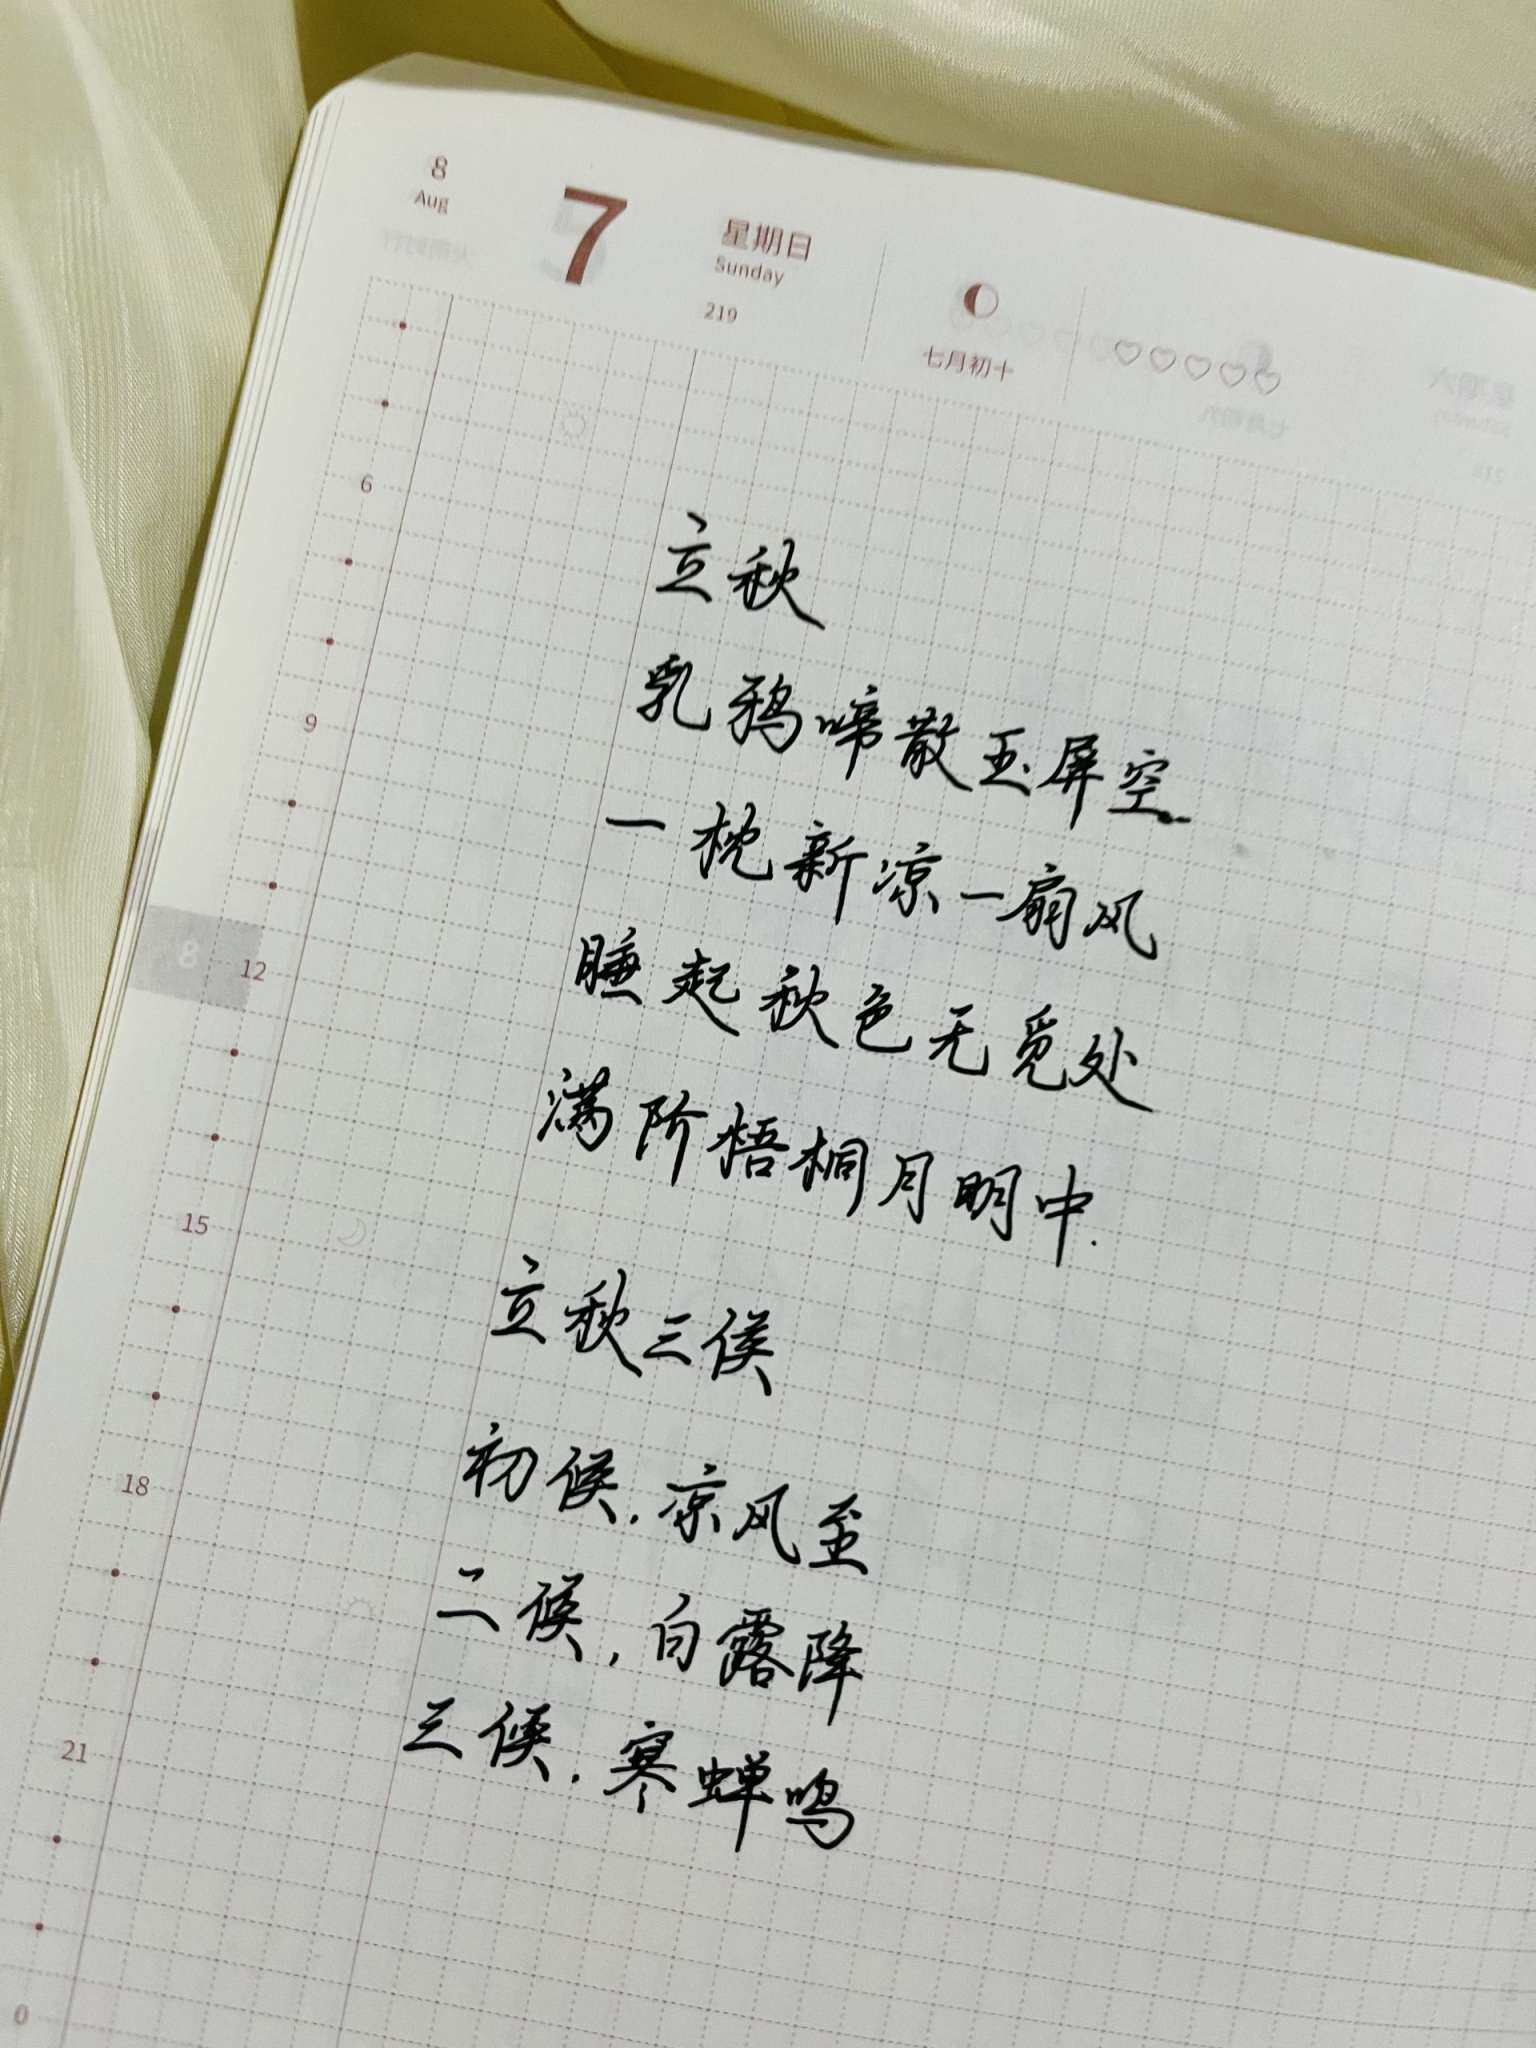 8
Aug
7
星期日
Sunday
219
七月初十
6
9
8
12
15
18
21
0
立秋
乳鸦啼散玉屏空
一枕新凉一扇风
睡起秋色无觅处
满阶梧桐月明中.
立秋三候
初候,凉风至
二候,白露降
三候,寒蝉鸣